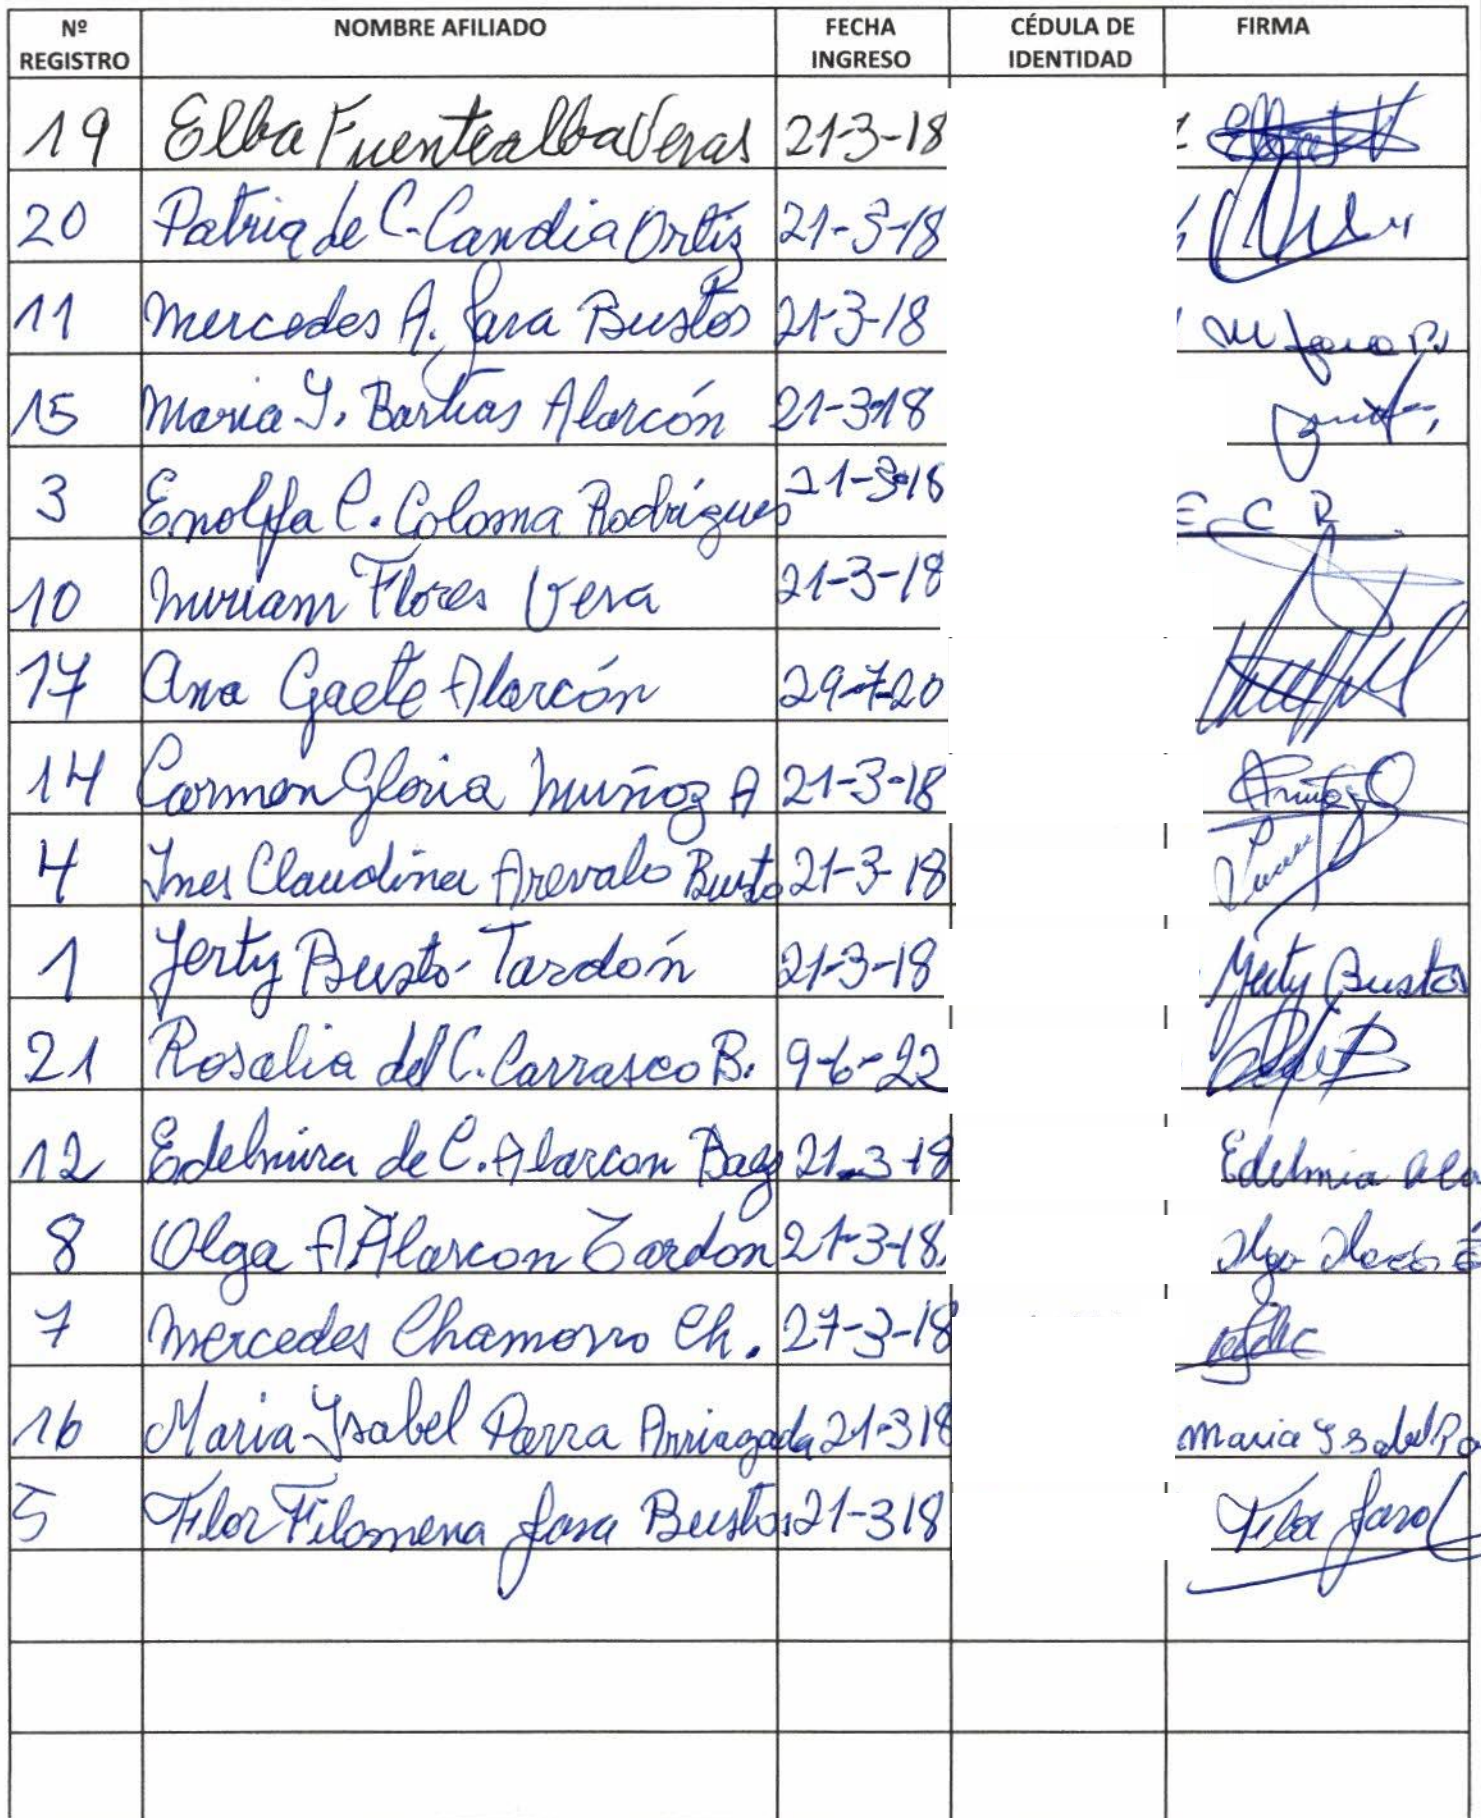 Nº REGISTRO NOMBRE AFILIADO FECHA INGRESO CÉDULA DE IDENTIDAD FIRMA
19 Elba Fuentealba Veras 21-3-18
20 Patria de C. Candia Ortiz 21-3-18
11 Mercedes A. Jara Bustos 21-3-18 M Jara B
15 Maria Y. Bartias Alarcón 21-3-18
3 Enolfa C. Coloma Rodrigues 21-3-18 E C R
10 Miriam Flores Vera 21-3-18
17 Ana Gaete Alarcón 29-7-20
14 Carmen Gloria Muñoz A 21-3-18
4 Ines Claudina Arevalo Busto 21-3-18
1 Jerty Busto Tardón 21-3-18 Jerty Bustos
21 Rosalia del C. Carrasco B. 9-6-22
12 Edelmira de C. Alarcon Baez 21-3-18 Edelmia Ala
8 Olga A Alarcon Tardon 21-3-18
7 Mercedes Chamorro Ch. 27-3-18
16 Maria Ysabel Parra Arriagada 21-3 18 Maria Ysabel Pa
5 Flor Filomena Jara Bustos 21-3 18 Flor Jara